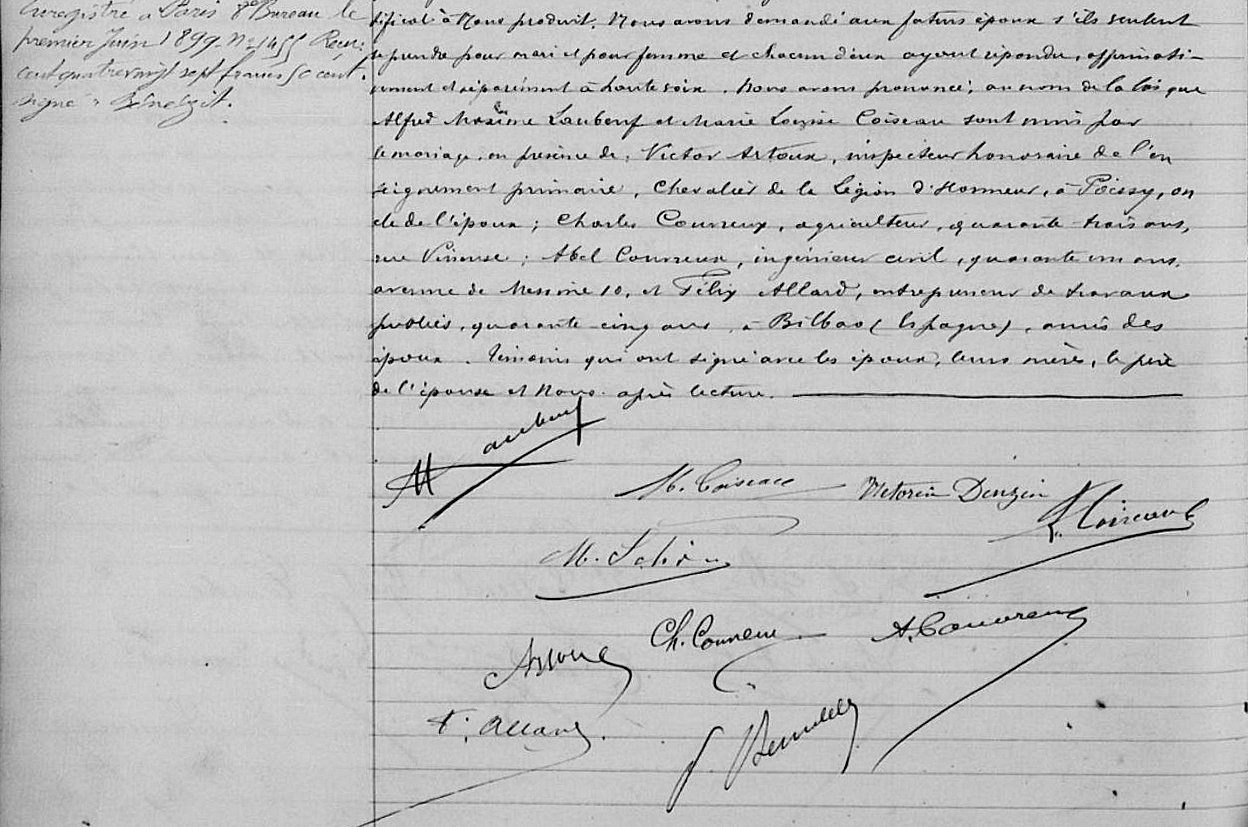 Enregistré à Paris 8e Bureau le
premier Juin 1899. No 1455 Reçu:
cent quatre vingt sept francs 50 cent.
signé:
tificat à Nous produit. Nous avons demandé aux futurs époux s'ils veulent
se prendre pour mari et pour femme et chacun d'eux ayant répondu, affirmati-
vement et séparément à haute voix. Nous avons prononcé, au nom de la loi que
Alfred Maxime Laubeuf et Marie Louise Coiseau sont unis par
le mariage, en présence de, Victor Artoux, inspecteur honoraire de l'en
seignement primaire, Chevalier de la Légion d'Honneur, à Poissy, on
cle de l'époux; Charles Couvreux, agriculteur, quarante-trois ans,
rue Vineuse; Abel Couvreux, ingénieur civil, quarante un ans,
avenue de Messine 10, et Félix Allard, entrepreneur de travaux
publics, quarante-cinq ans, à Bilbao (Espagne), amis des
époux. Témoins qui ont signé avec les époux, leurs mères, le père
de l'épouse et Nous. après lecture.
M Laubeuf
M. Coiseau Victorin Denzin L. Coiseau
Artoux Ch. Couvreux A. Couvreux
F. Allard.